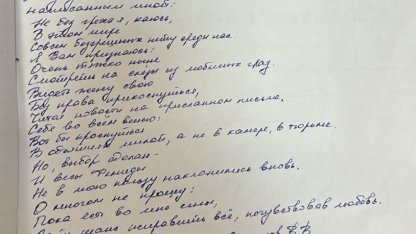 написанным мной:
Не без греха я, каюсь,
В этом мире
Совсем безгрешных нету среди нас.
Я Вам признаюсь!
Очень тяжко ныне
Смотреть на следы из любимых глаз.
Видеть жену свою
Без права прикоснуться,
Читая новости на присланном письме.
Себя во всём виню!
Вот бы проснуться
В объятиях милой, а не в камере, в тюрьме.
Но, выбор сделан -
И весы Фемиды
Не в мою пользу наклонились вновь.
О многом не прошу:
Пока есть во мне силы,
шанс исправить всё, почувствовав любовь.
В.В.